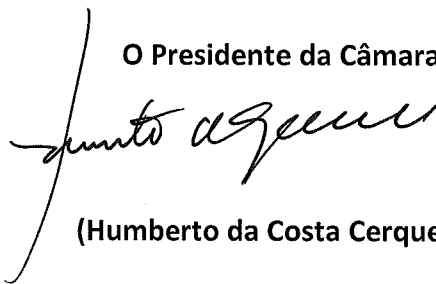 O Presidente da Câmara
(Humberto da Costa Cerque